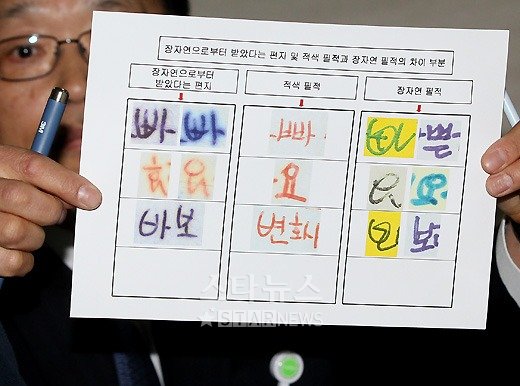 장자연으로부터 받았다는 편지 및 적색 필적과 장자연 필적의 차이 부분
장자연으로부터 받았다는 편지
적색 필적
장자연 필적
빠 빠
빠
쁜
요
요
요
바보
변화시
보
스타뉴스
STARNEWS